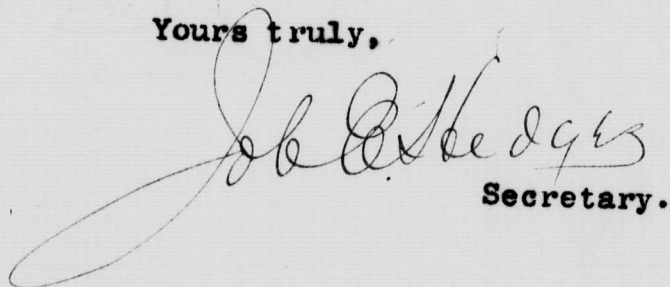 Yours truly,
Job E. Hedges
Secretary.